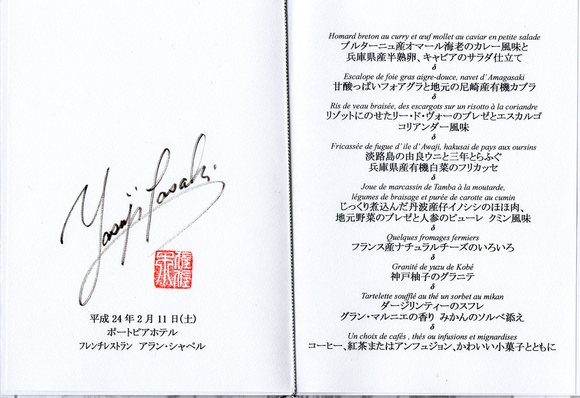 Yasuji Sasaki
平成24年2月11日(土)
ポートピアホテル
フレンチレストラン アラン・シャペル
Homard breton au curry et œuf mollet au caviar en petite salade
ブルターニュ産オマール海老のカレー風味と
兵庫県産半熟卵、キャビアのサラダ仕立て
δ
Escalope de foie gras aigre-douce, navet d'Amagasaki
甘酸っぱいフォアグラと地元の尼崎産有機カブラ
δ
Ris de veau braisée, des escargots sur un risotto à la coriandre
リゾットにのせたリー・ド・ヴォーのブレゼとエスカルゴ
コリアンダー風味
δ
Fricassée de fugue d'ile d'Awaji, hakusai de pays aux oursins
淡路島の由良ウニと三年とらふぐ
兵庫県産有機白菜のフリカッセ
δ
Joue de marcassin de Tamba à la moutarde,
légumes de braisage et purée de carotte au cumin
じっくり煮込んだ丹波産仔イノシシのほほ肉、
地元野菜のブレゼと人参のピューレ クミン風味
δ
Quelques fromages fermiers
フランス産ナチュラルチーズのいろいろ
δ
Granité de yuzu de Kobé
神戸柚子のグラニテ
δ
Tartelette soufflé au thé un sorbet au mikan
ダージリンティーのスフレ
グラン・マルニエの香り みかんのソルベ添え
δ
Un choix de cafés , thés ou infusions et mignardises
コーヒー、紅茶またはアンフュジョン、かわいい小菓子とともに